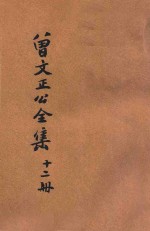 曾文正公全集
十二册